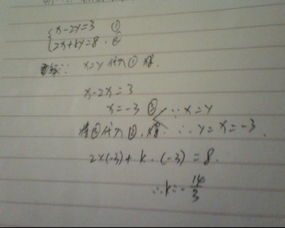 x-2y=3 ①
2x+ky=8. ②
解:∵ x=y 代入①得
x-2x=3
x=-3 ③ ∵ x=y
将③代入②,得 ∴ y=x=-3.
2×(-3)+k·(-3)=8.
∴k=-14/3